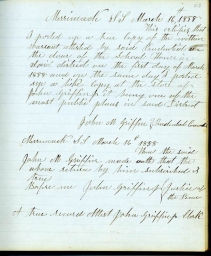 Merrimack S.S. March 16th 1858
This certifies that
I posted up a true copy of the within
warrant attested by said Prudential
the door of the School House in
district on the first day of March
1858 and on the same day I posted
up a like copy at the store of
John Griffin Jr. being one of the
most public places in said District
John M Griffin
Merrimack S.S. March 16 1858
Then the said
John M Griffin made oath that the
above return by him subscribed is
true
Before me John Griffin Jr Justice of
the Peace
A true record Attest John Griffin Jr Clerk